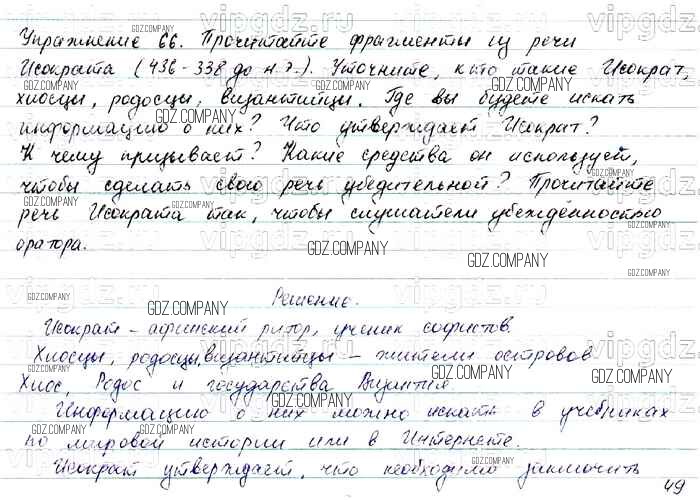 Упражнение 66. Прочитайте фрагменты из речи
Исократа (436-338 до н.э.). Уточните, кто такие Исократ,
хиосцы, родосцы, византийцы. Где вы будете искать
информацию о них? Что утверждает Исократ?
К чему призывает? Какие средства он использует,
чтобы сделать свою речь убедительной? Прочитайте
речь Исократа так, чтобы слушатели убеждённостью
оратора.
Решение.
Исократ - афинский ритор, ученик софистов.
Хиосцы, родосцы, византийцы - жители островов
Хиос, Родос и государства Византия.
Информацию о них можно искать в учебниках
по мировой истории или в Интернете.
Исократ утверждает, что необходимо заключить
49
vipgdz.ru
GDZ.COMPANY